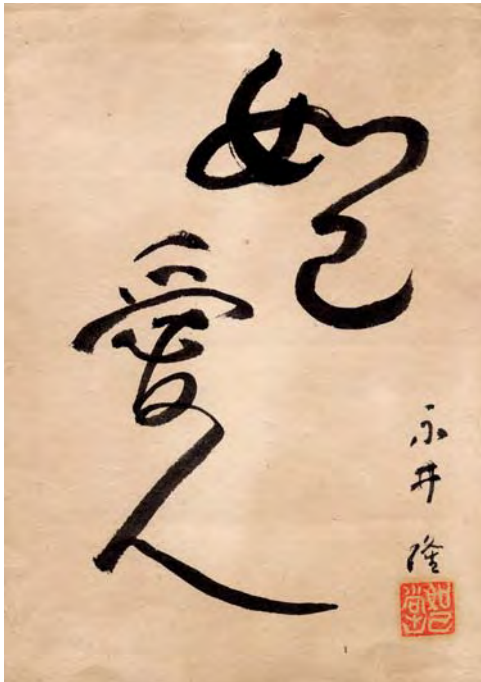 如己
愛人
永井隆
如己堂